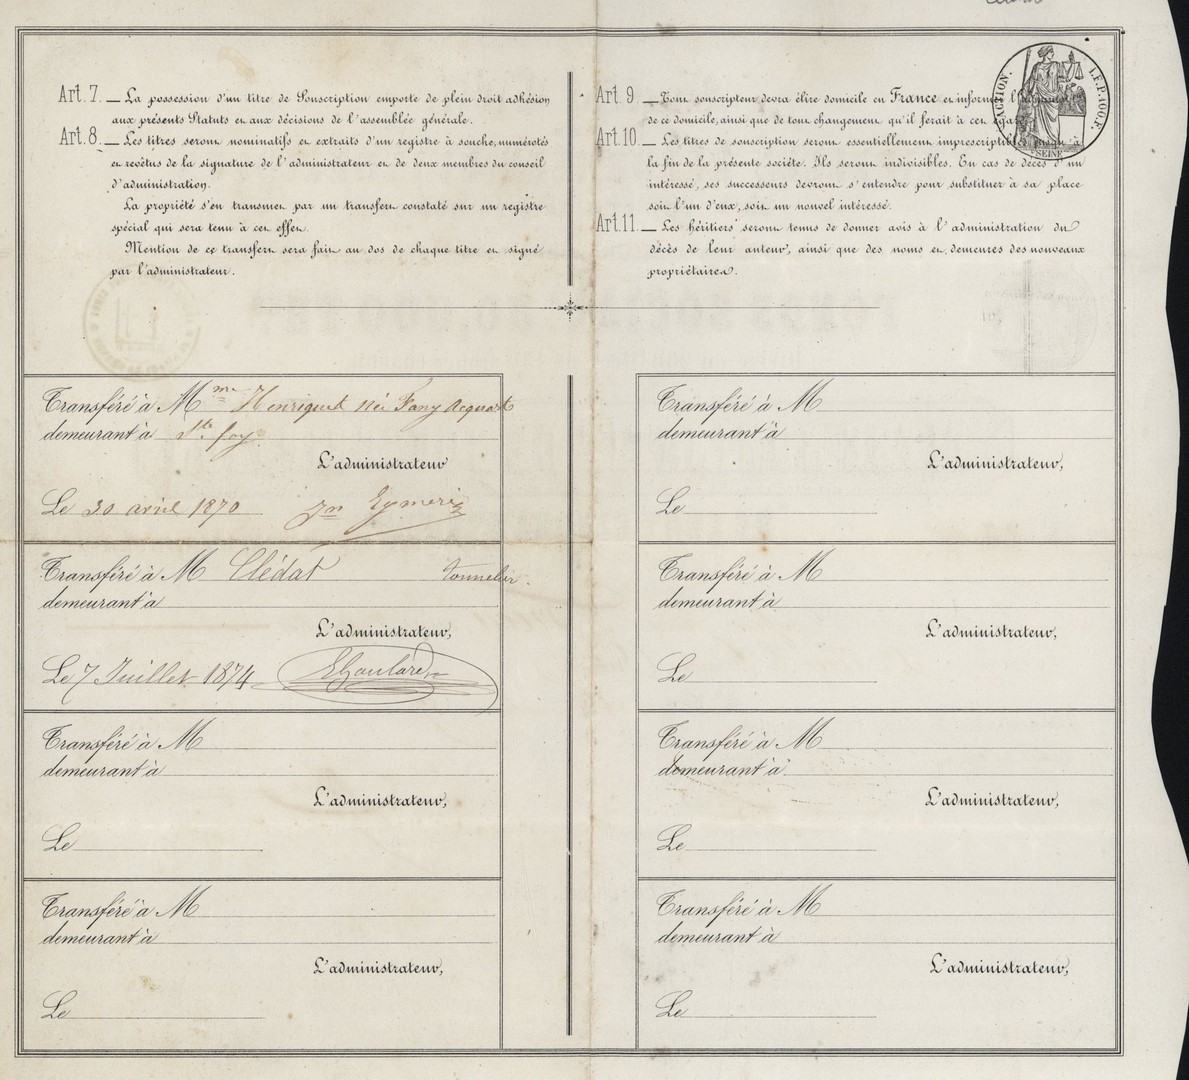 Art. 7. — La possession d'un titre de Souscription emporte de plein droit adhésion
aux présents Statuts et aux décisions de l'assemblée générale.
Art. 8. — Les titres seront nominatifs et extraits d'un registre à souche, numérotés
et revêtus de la signature de l'administrateur et de deux membres du conseil
d'administration.
La propriété s'en transmet par un transfert constaté sur un registre
spécial qui sera tenu à cet effet.
Mention de ce transfert sera fait au dos de chaque titre et signé
par l'administrateur.
Art. 9 — Tout souscripteur devra élire domicile en France et informer
de ce domicile, ainsi que de tout changement qu'il ferait à cet égard
Art. 10. — Les titres de souscription seront essentiellement imprescriptibles jusqu'à
la fin de la présente société. Ils seront indivisibles. En cas de décès d'un
intéressé, ses successeurs devront s'entendre pour substituer à sa place
soit l'un d'eux, soit un nouvel intéressé.
Art. 11. — Les héritiers seront tenus de donner avis à l'administration du
décès de leur auteur, ainsi que des noms et demeures des nouveaux
propriétaires.
SEINE
Transféré à Mme Henriquet née Fany Acquart
demeurant à Ste foy
L'administrateur
Le 30 avril 1870 Jn Eymeri
Transféré à M Clédat tonnelier.
demeurant à
L'administrateur,
Le 7 Juillet 1874 EGoulard
Transféré à M
demeurant à
L'administrateur,
Le
Transféré à M
demeurant à
L'administrateur,
Le
Transféré à M
demeurant à
L'administrateur,
Le
Transféré à M
demeurant à
L'administrateur,
Le
Transféré à M
demeurant à
L'administrateur,
Le
Transféré à M
demeurant à
L'administrateur,
Le